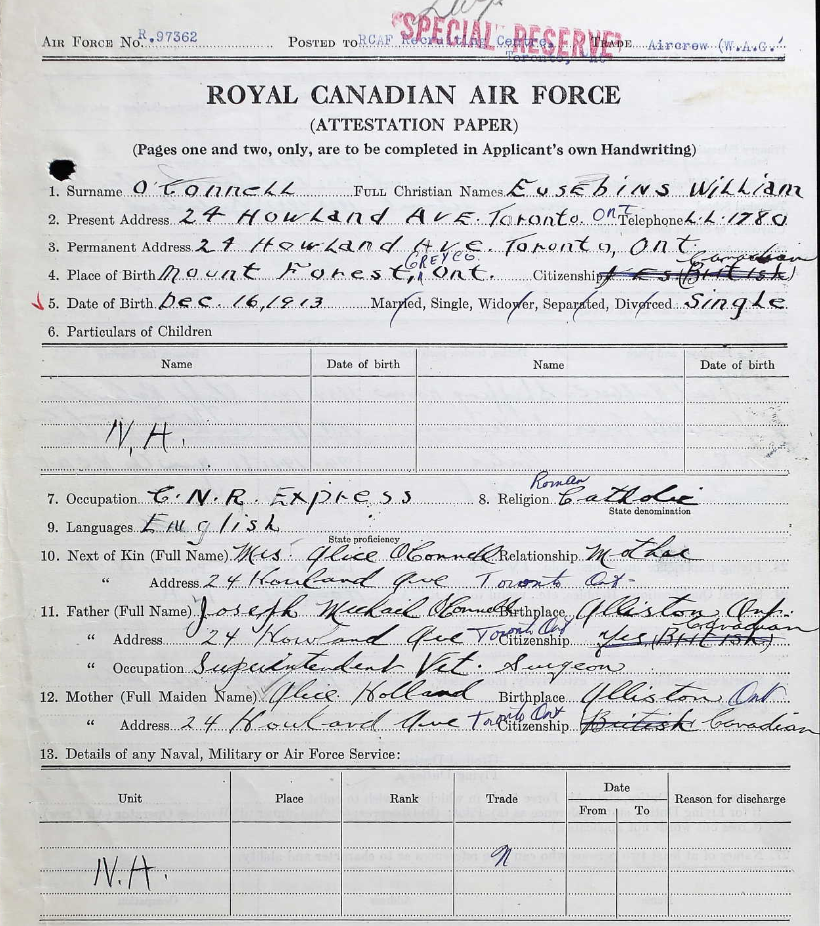 "SPECIAL RESERVE"
AIR FORCE No. R.97362 POSTED TO RCAF Recruiting Centre, TRADE Aircrew (W.A.G.
Toronto, Ont
ROYAL CANADIAN AIR FORCE
(ATTESTATION PAPER)
(Pages one and two, only, are to be completed in Applicant's own Handwriting)
1. Surname O'Connell FULL Christian Names Eusebius William
2. Present Address 24 Howland Ave. Toronto. ONT Telephone L.L. 1780
3. Permanent Address 24 Howland Ave. Toronto, Ont.
4. Place of Birth Mount Forest, GREY CO. Ont. Citizenship Yes (British) Canadian
5. Date of Birth Dec. 16, 1913 Married, Single, Widower, Separated, Divorced Single
6. Particulars of Children
Name Date of birth Name Date of birth
N.A.
7. Occupation C.N.R. Express 8. Religion Roman Catholic
State denomination
9. Languages English
State proficiency
10. Next of Kin (Full Name) Mrs. Alice O'Connell Relationship Mother
" Address 24 Howland Ave Toronto Ont-
11. Father (Full Name) Joseph Michael O'Connell Birthplace Alliston Ont.
" Address 24 Howland Ave Toronto Ont Citizenship Yes (British) Canadian
" Occupation Superintendent Vet. Surgeon
12. Mother (Full Maiden Name) Alice Holland Birthplace Alliston Ont
" Address 24 Howland Ave Toronto Ont Citizenship British Canadian
13. Details of any Naval, Military or Air Force Service:
Unit Place Rank Trade Date Reason for discharge
From To
N.A. N